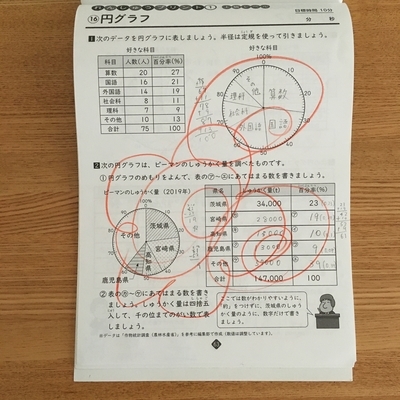 ⑯円グラフ
目標時間 10分
分 秒
1 次のデータを円グラフに表しましょう。半径は定規を使って引きましょう。
好きな科目
科目 人数(人) 百分率(%)
算数 20 27
国語 16 21
外国語 14 19
社会科 8 11
理科 7 9
その他 10 13
合計 75 100
好きな科目
100%
0
10
20
30
40
50
60
70
80
90
算数
国語
外国語
社会科
理科
その他
2 次の円グラフは、ピーマンのしゅうかく量を調べたものです。
① 円グラフのめもりをよんで、表の㋐〜㋓にあてはまる数を書きましょう。
ピーマンのしゅうかく量(2019年)
100%
茨城県
宮崎県
高知県
鹿児島県
その他
県名 しゅうかく量(t) 百分率(%)
茨城県 34,000 23
宮崎県 28000 19
高知県
鹿児島県 9
その他
合計 147,000 100
② 表の
にあてはまる数を書き
ましょう。しゅうかく量は四捨五
入して、千の位までのがい数で表
しましょう。
ここでは数がわかりやすいように、
「約」をつけずに、茨城県のしゅう
かく量のように、数字だけで書きま
しょう。